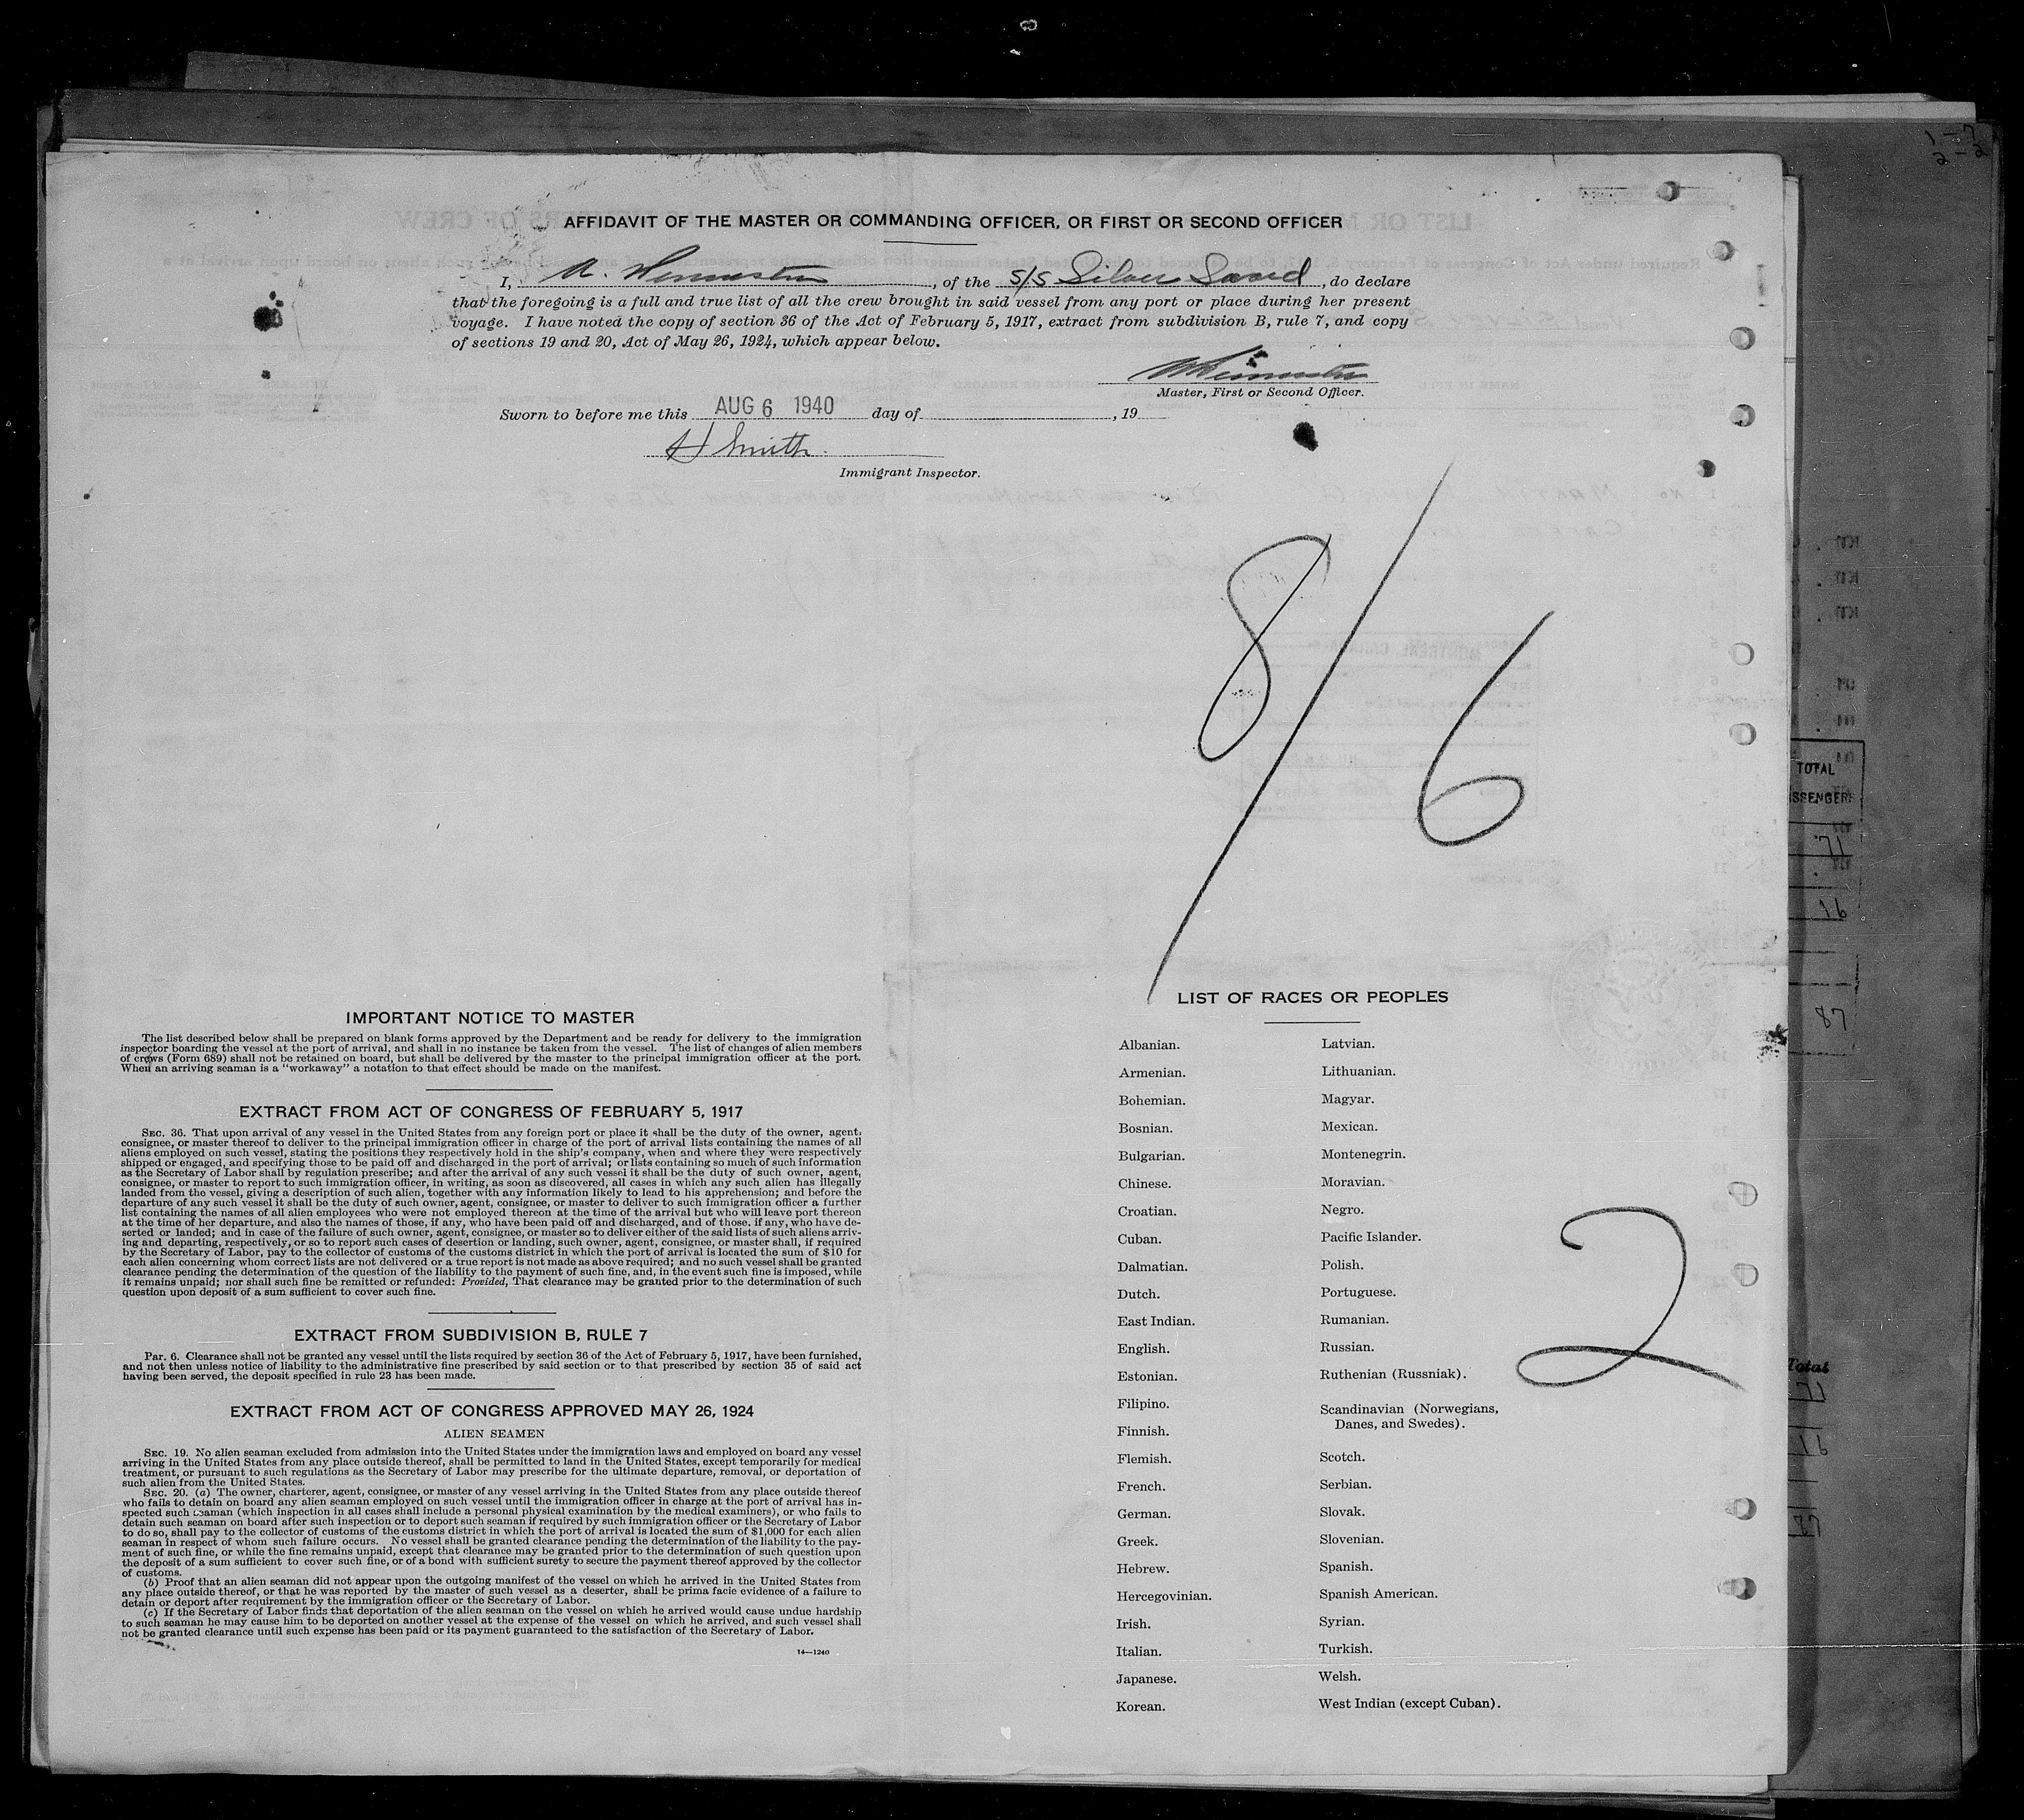 AFFIDAVIT OF THE MASTER OR COMMANDING OFFICER, OR FIRST OR SECOND OFFICER
I, A. , of the S/S Silver Sand, do declare
that the foregoing is a full and true list of all the crew brought in said vessel from any port or place during her present
voyage. I have noted the copy of section 36 of the Act of February 5, 1917, extract from subdivision B, rule 7, and copy
of sections 19 and 20, Act of May 26, 1924, which appear below.
Master, First or Second Officer.
Sworn to before me this AUG 6 1940 day of , 19
H Smith
Immigrant Inspector.
8/6
IMPORTANT NOTICE TO MASTER
The list described below shall be prepared on blank forms approved by the Department and be ready for delivery to the immigration
inspector boarding the vessel at the port of arrival, and shall in no instance be taken from the vessel. The list of changes of alien members
of crews (Form 689) shall not be retained on board, but shall be delivered by the master to the principal immigration officer at the port.
When an arriving seaman is a "workaway" a notation to that effect should be made on the manifest.
EXTRACT FROM ACT OF CONGRESS OF FEBRUARY 5, 1917
SEC. 36. That upon arrival of any vessel in the United States from any foreign port or place it shall be the duty of the owner, agent,
consignee, or master thereof to deliver to the principal immigration officer in charge of the port of arrival lists containing the names of all
aliens employed on such vessel, stating the positions they respectively hold in the ship's company, when and where they were respectively
shipped or engaged, and specifying those to be paid off and discharged in the port of arrival; or lists containing so much of such information
as the Secretary of Labor shall by regulation prescribe; and after the arrival of any such vessel it shall be the duty of such owner, agent,
consignee, or master to report to such immigration officer, in writing, as soon as discovered, all cases in which any such alien has illegally
landed from the vessel, giving a description of such alien, together with any information likely to lead to his apprehension; and before the
departure of any such vessel it shall be the duty of such owner, agent, consignee, or master to deliver to such immigration officer a further
list containing the names of all alien employees who were not employed thereon at the time of the arrival but who will leave port thereon
at the time of her departure, and also the names of those, if any, who have been paid off and discharged, and of those. if any, who have de-
serted or landed; and in case of the failure of such owner, agent, consignee, or master so to deliver either of the said lists of such aliens arriv-
ing and departing, respectively, or so to report such cases of desertion or landing, such owner, agent, consignee, or master shall, if required
by the Secretary of Labor, pay to the collector of customs of the customs district in which the port of arrival is located the sum of $10 for
each alien concerning whom correct lists are not delivered or a true report is not made as above required; and no such vessel shall be granted
clearance pending the determination of the question of the liability to the payment of such fine, and, in the event such fine is imposed, while
it remains unpaid; nor shall such fine be remitted or refunded: Provided, That clearance may be granted prior to the determination of such
question upon deposit of a sum sufficient to cover such fine.
EXTRACT FROM SUBDIVISION B, RULE 7
PAR. 6. Clearance shall not be granted any vessel until the lists required by section 36 of the Act of February 5, 1917, have been furnished,
and not then unless notice of liability to the administrative fine prescribed by said section or to that prescribed by section 35 of said act
having been served, the deposit specified in rule 23 has been made.
EXTRACT FROM ACT OF CONGRESS APPROVED MAY 26, 1924
ALIEN SEAMEN
SEC. 19. No alien seaman excluded from admission into the United States under the immigration laws and employed on board any vessel
arriving in the United States from any place outside thereof, shall be permitted to land in the United States, except temporarily for medical
treatment, or pursuant to such regulations as the Secretary of Labor may prescribe for the ultimate departure, removal, or deportation of
such alien from the United States.
SEC. 20. (a) The owner, charterer, agent, consignee, or master of any vessel arriving in the United States from any place outside thereof
who fails to detain on board any alien seaman employed on such vessel until the immigration officer in charge at the port of arrival has in-
spected such seaman (which inspection in all cases shall include a personal physical examination by the medical examiners), or who fails to
detain such seaman on board after such inspection or to deport such seaman if required by such immigration officer or the Secretary of Labor
to do so, shall pay to the collector of customs of the customs district in which the port of arrival is located the sum of $1,000 for each alien
seaman in respect of whom such failure occurs. No vessel shall be granted clearance pending the determination of the liability to the pay-
ment of such fine, or while the fine remains unpaid, except that clearance may be granted prior to the determination of such question upon
the deposit of a sum sufficient to cover such fine, or of a bond with sufficient surety to secure the payment thereof approved by the collector
of customs.
(b) Proof that an alien seaman did not appear upon the outgoing manifest of the vessel on which he arrived in the United States from
any place outside thereof, or that he was reported by the master of such vessel as a deserter, shall be prima facie evidence of a failure to
detain or deport after requirement by the immigration officer or the Secretary of Labor.
(c) If the Secretary of Labor finds that deportation of the alien seaman on the vessel on which he arrived would cause undue hardship
to such seaman he may cause him to be deported on another vessel at the expense of the vessel on which he arrived, and such vessel shall
not be granted clearance until such expense has been paid or its payment guaranteed to the satisfaction of the Secretary of Labor.
14—1240
LIST OF RACES OR PEOPLES
Albanian.
Armenian.
Bohemian.
Bosnian.
Bulgarian.
Chinese.
Croatian.
Cuban.
Dalmatian.
Dutch.
East Indian.
English.
Estonian.
Filipino.
Finnish.
Flemish.
French.
German.
Greek.
Hebrew.
Hercegovinian.
Irish.
Italian.
Japanese.
Korean.
Latvian.
Lithuanian.
Magyar.
Mexican.
Montenegrin.
Moravian.
Negro.
Pacific Islander.
Polish.
Portuguese.
Rumanian.
Russian.
Ruthenian (Russniak).
Scandinavian (Norwegians,
Danes, and Swedes).
Scotch.
Serbian.
Slovak.
Slovenian.
Spanish.
Spanish American.
Syrian.
Turkish.
Welsh.
West Indian (except Cuban).
2
TOTAL
Total